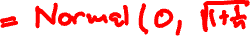 = Normal(0, √1+1/n